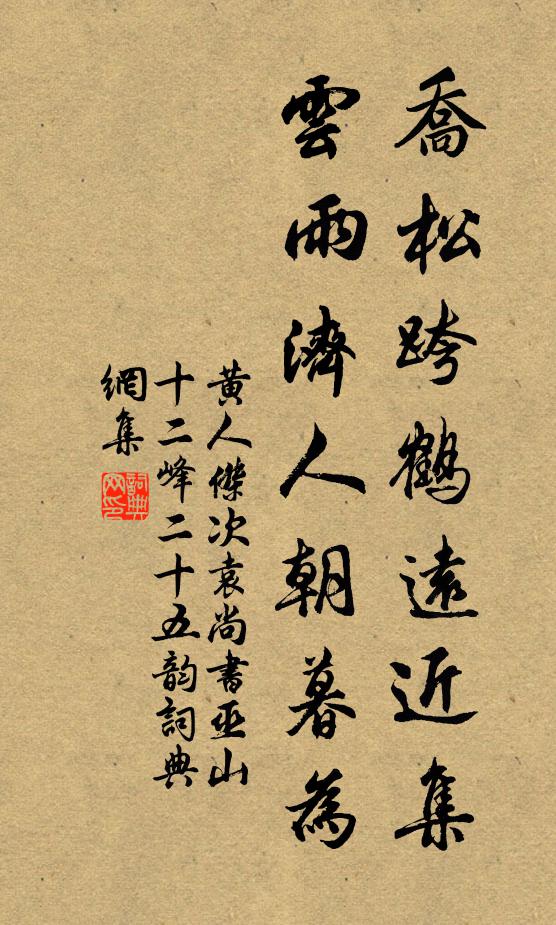 喬松跨鶴遠近集
雲雨濟人朝暮為
黄人傑次袁尚書巫山
十二峰二十五韵詞典
網集
詞典
网印